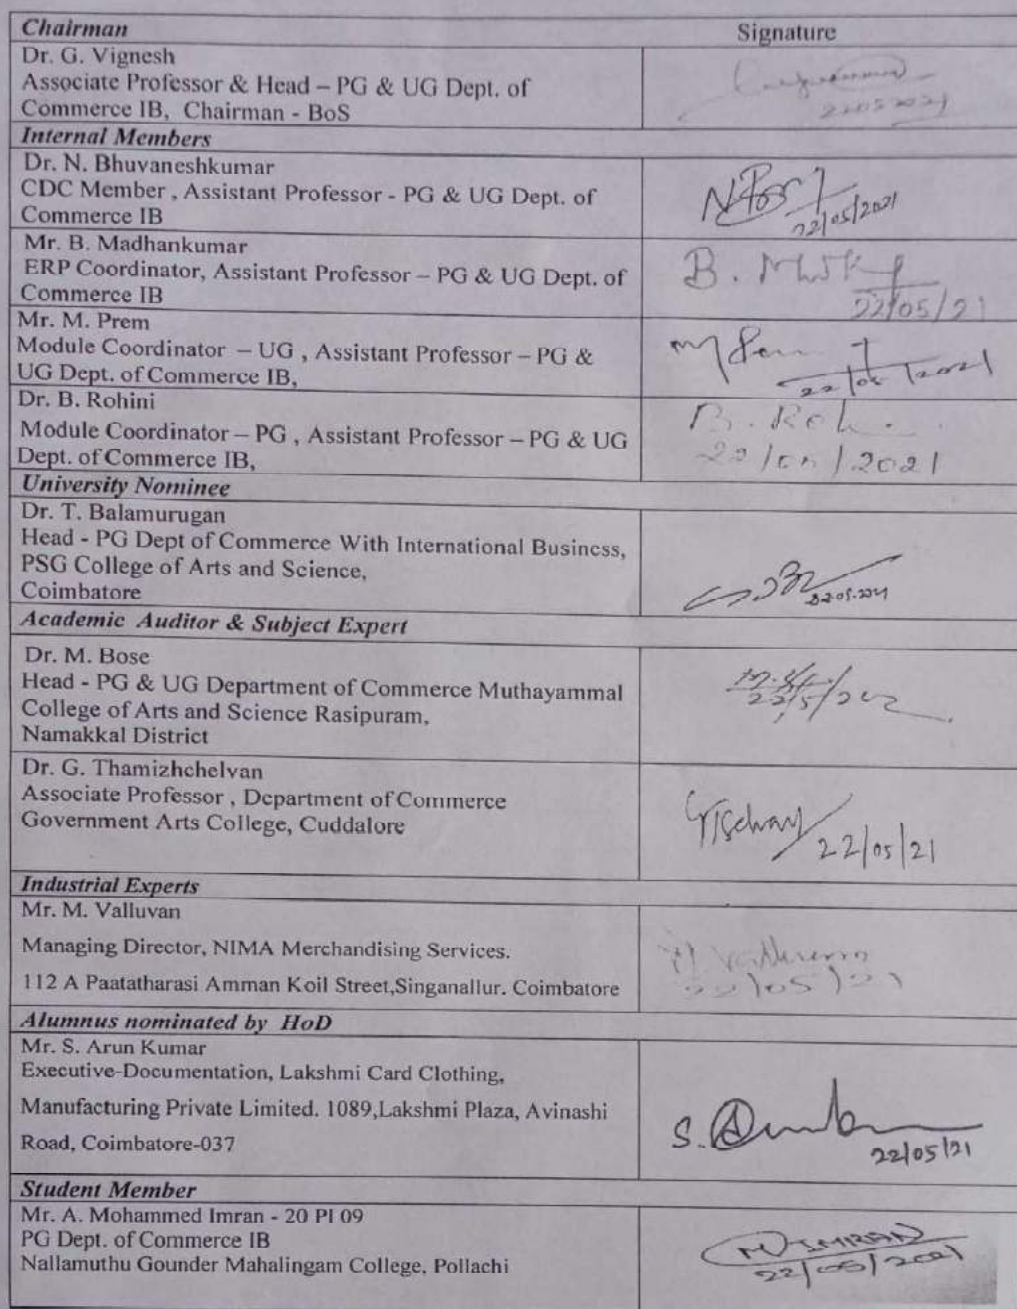 Chairman Signature
Dr. G. Vignesh
Associate Professor & Head – PG & UG Dept. of
Commerce IB, Chairman - BoS
22052021
Internal Members
Dr. N. Bhuvaneshkumar
CDC Member , Assistant Professor - PG & UG Dept. of
Commerce IB
22/05/2021
Mr. B. Madhankumar
ERP Coordinator, Assistant Professor – PG & UG Dept. of
Commerce IB
22/05/21
Mr. M. Prem
Module Coordinator – UG , Assistant Professor – PG &
UG Dept. of Commerce IB,
22/05/2021
Dr. B. Rohini
Module Coordinator – PG , Assistant Professor – PG & UG
Dept. of Commerce IB,
22/05/2021
University Nominee
Dr. T. Balamurugan
Head - PG Dept of Commerce With International Business,
PSG College of Arts and Science,
Coimbatore
22.05.2021
Academic Auditor & Subject Expert
Dr. M. Bose
Head - PG & UG Department of Commerce Muthayammal
College of Arts and Science Rasipuram,
Namakkal District
Dr. G. Thamizhchelvan
Associate Professor , Department of Commerce
Government Arts College, Cuddalore
22/05/21
Industrial Experts
Mr. M. Valluvan
Managing Director, NIMA Merchandising Services.
112 A Paatatharasi Amman Koil Street,Singanallur. Coimbatore
22/05/21
Alumnus nominated by HoD
Mr. S. Arun Kumar
Executive-Documentation, Lakshmi Card Clothing,
Manufacturing Private Limited. 1089,Lakshmi Plaza, Avinashi
Road, Coimbatore-037
22/05/21
Student Member
Mr. A. Mohammed Imran - 20 PI 09
PG Dept. of Commerce IB
Nallamuthu Gounder Mahalingam College, Pollachi
M IMRAN
22/05/2021